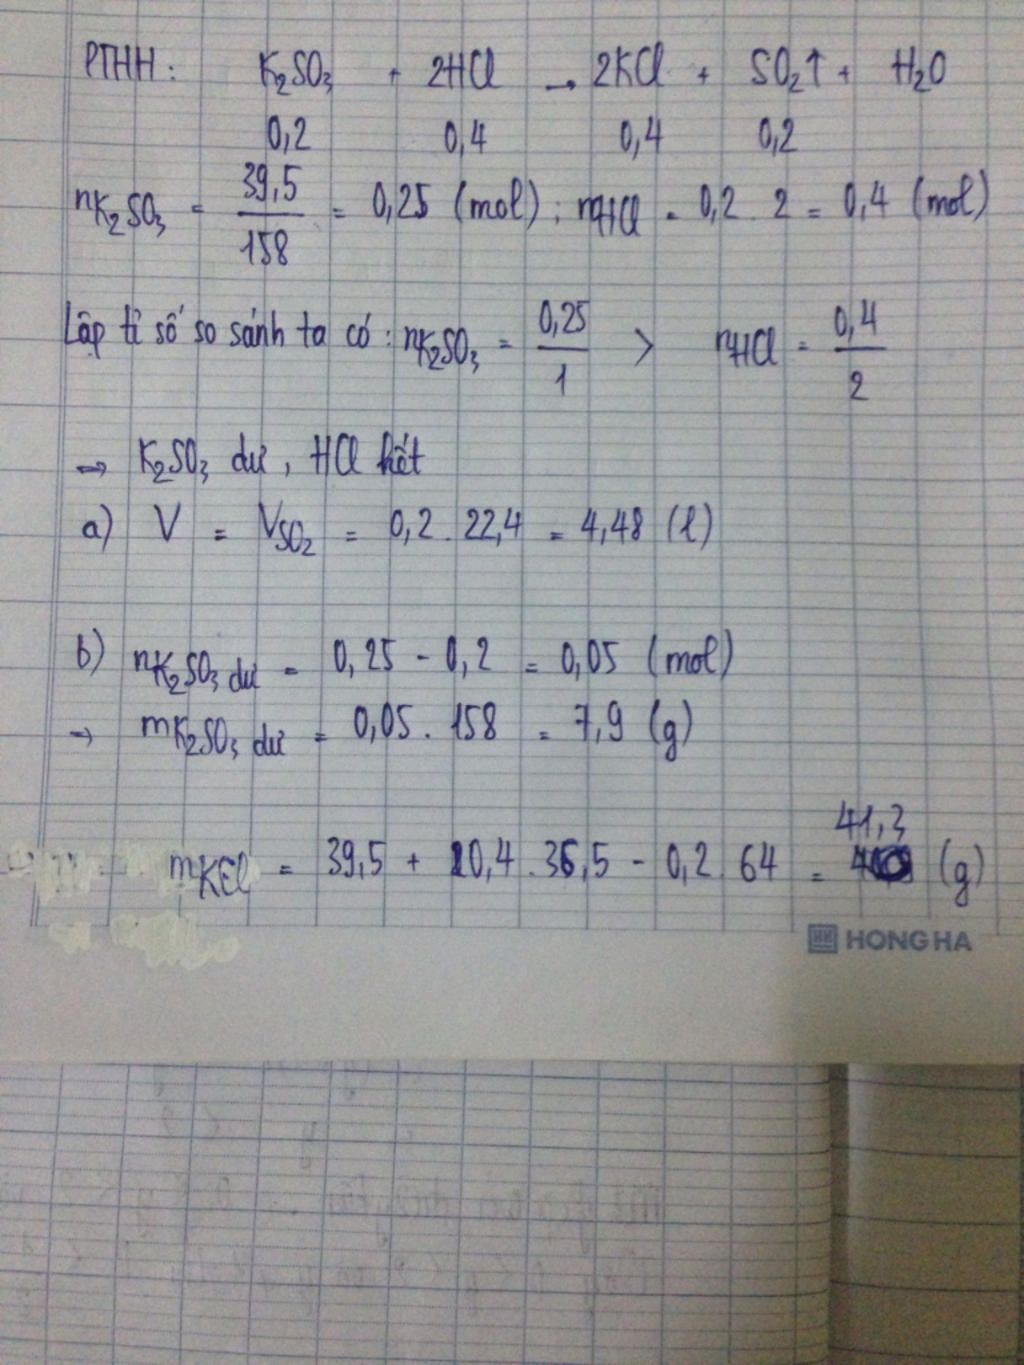 PTHH: K₂SO₃ + 2HCl → 2KCl + SO₂↑ + H₂O
0,2 0,4 0,4 0,2
nK₂SO₃ = 39,5/158 = 0,25 (mol); nHCl = 0,2 . 2 = 0,4 (mol)
Lập tỉ số so sánh ta có: nK₂SO₃ = 0,25/1 > nHCl = 0,4/2
→ K₂SO₃ dư, HCl hết
a) V = VSO₂ = 0,2 . 22,4 = 4,48 (l)
b) nK₂SO₃ dư = 0,25 - 0,2 = 0,05 (mol)
→ mK₂SO₃ dư = 0,05 . 158 = 7,9 (g)
mKCl = 39,5 + 0,4 . 36,5 - 0,2 . 64 = 41,3 (g)
HONG HA